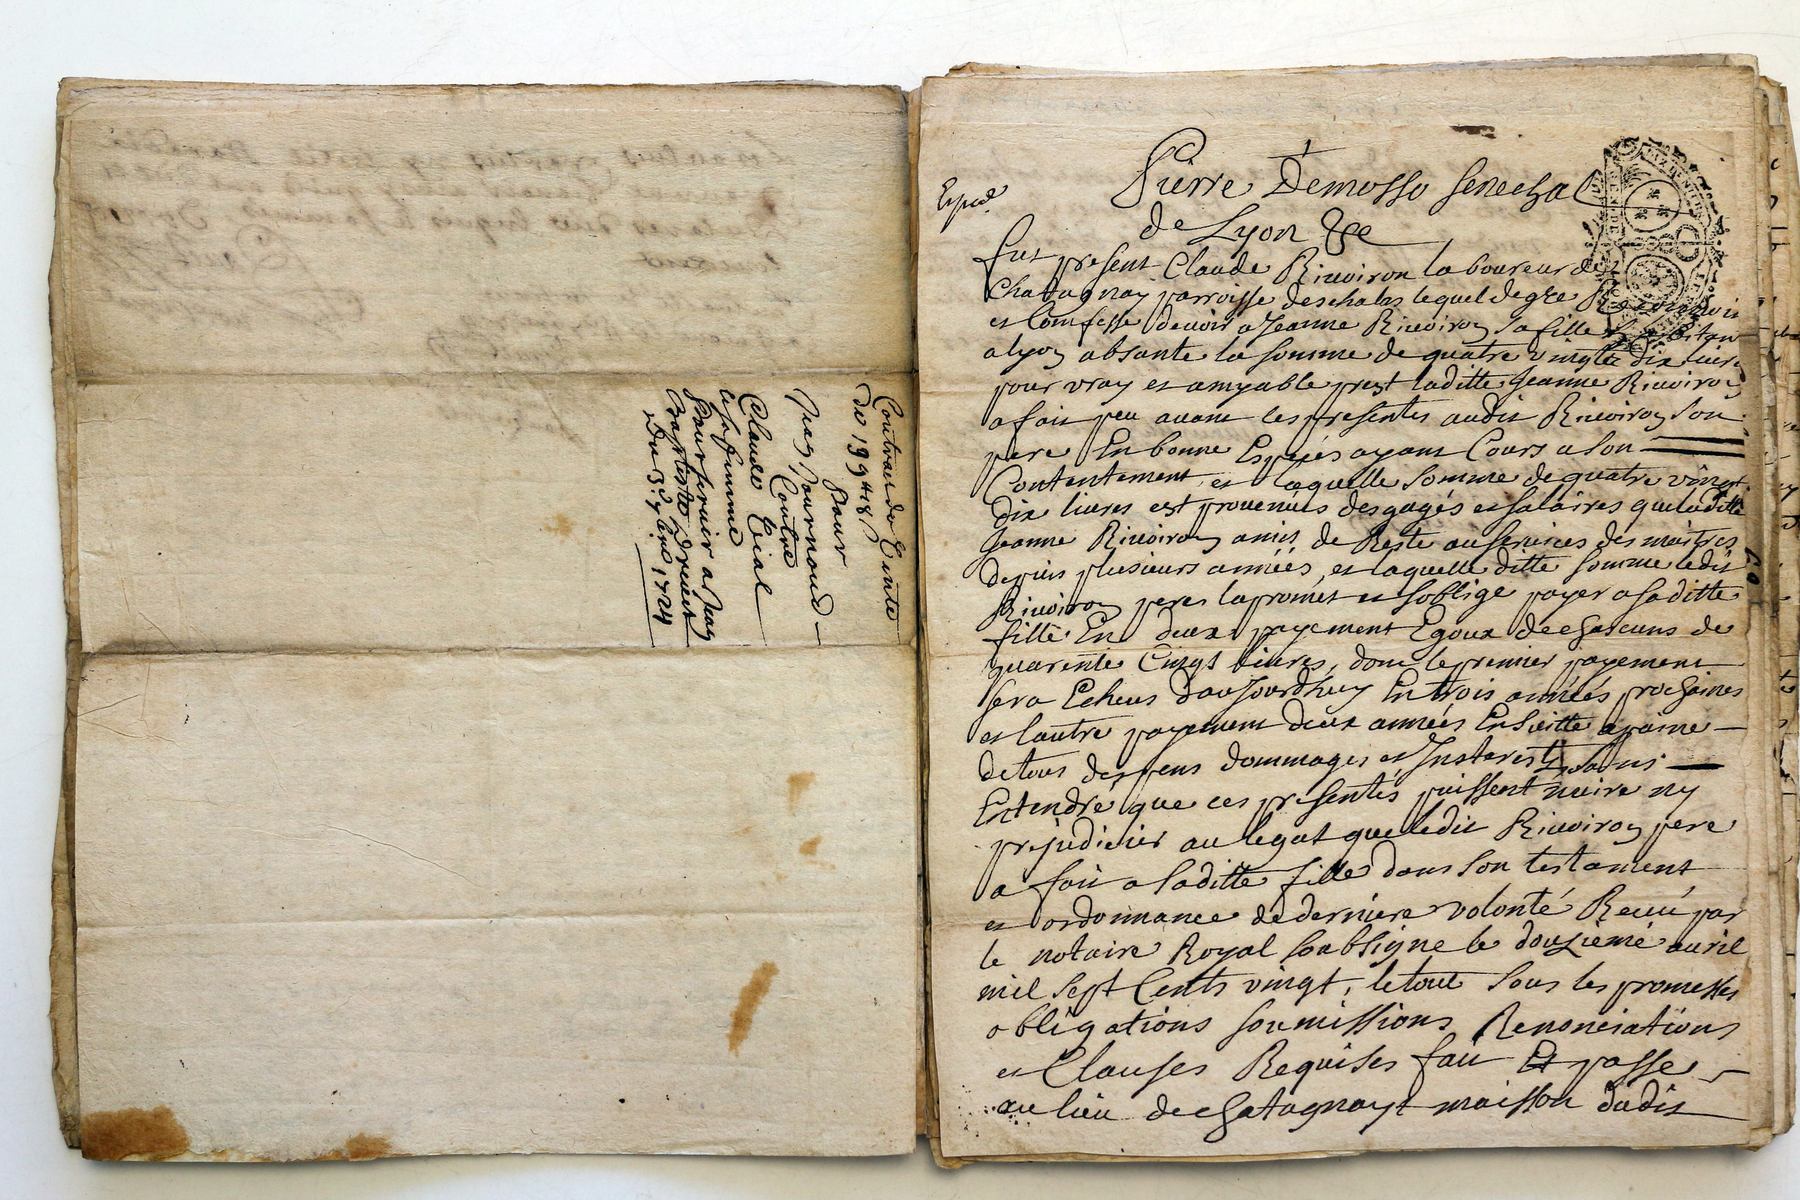 Contract de Vente
de 199 ₶ 18 s
pour
Contre
Claude
et sa femme
Pour servir a
Baptiste
Du 3e 1724
Exped.
Pierre Demosso senechal
de Lyon &c
fut present Claude Riuoiron laboureur de
Chatagnay parroisse deschalas lequel de gre
et Confesse deuoir a Jeanne Riuoiron sa fille
a lyon absante la somme de quatre vingts dix liures
pour vray et amyable prest laditte Jeanne Riuoiron
a fait peu auant les presentes audit Riuoiron son
pere En bonne Especes ayant Cours a son
Contentement et laquelle somme de quatre vingt
dix liures est prouenues des gages et salaires que laditte
Jeanne Riuoiron amis de Reste au seruices des maitres
depuis plusieurs années, et laquelle ditte somme ledit
Riuoiron pere la promet et soblige payer a saditte
fille En deux payement Egoux de chascuns de
quarente Cinqt liures, dont le premier payement
sera Echeus daujourdhuy En trois années prochaines
et lautre payement deux années Ensuitte a paine
de tous despens dommages et Insterests sans
Entendre que ces presentes puissent nuire ny
prejudicier au legat que ledit Riuoiron pere
a fait a saditte fille dans son testament
et ordonnance de derniere volonté Receu par
le notaire Royal soubsigne le douzieme auril
mil sept Cents vingt, le tout sous les promesses
obligations soumissions Renonciations
et Clauses Requises fait Et passe
au lieu de chatagnay maison dudit